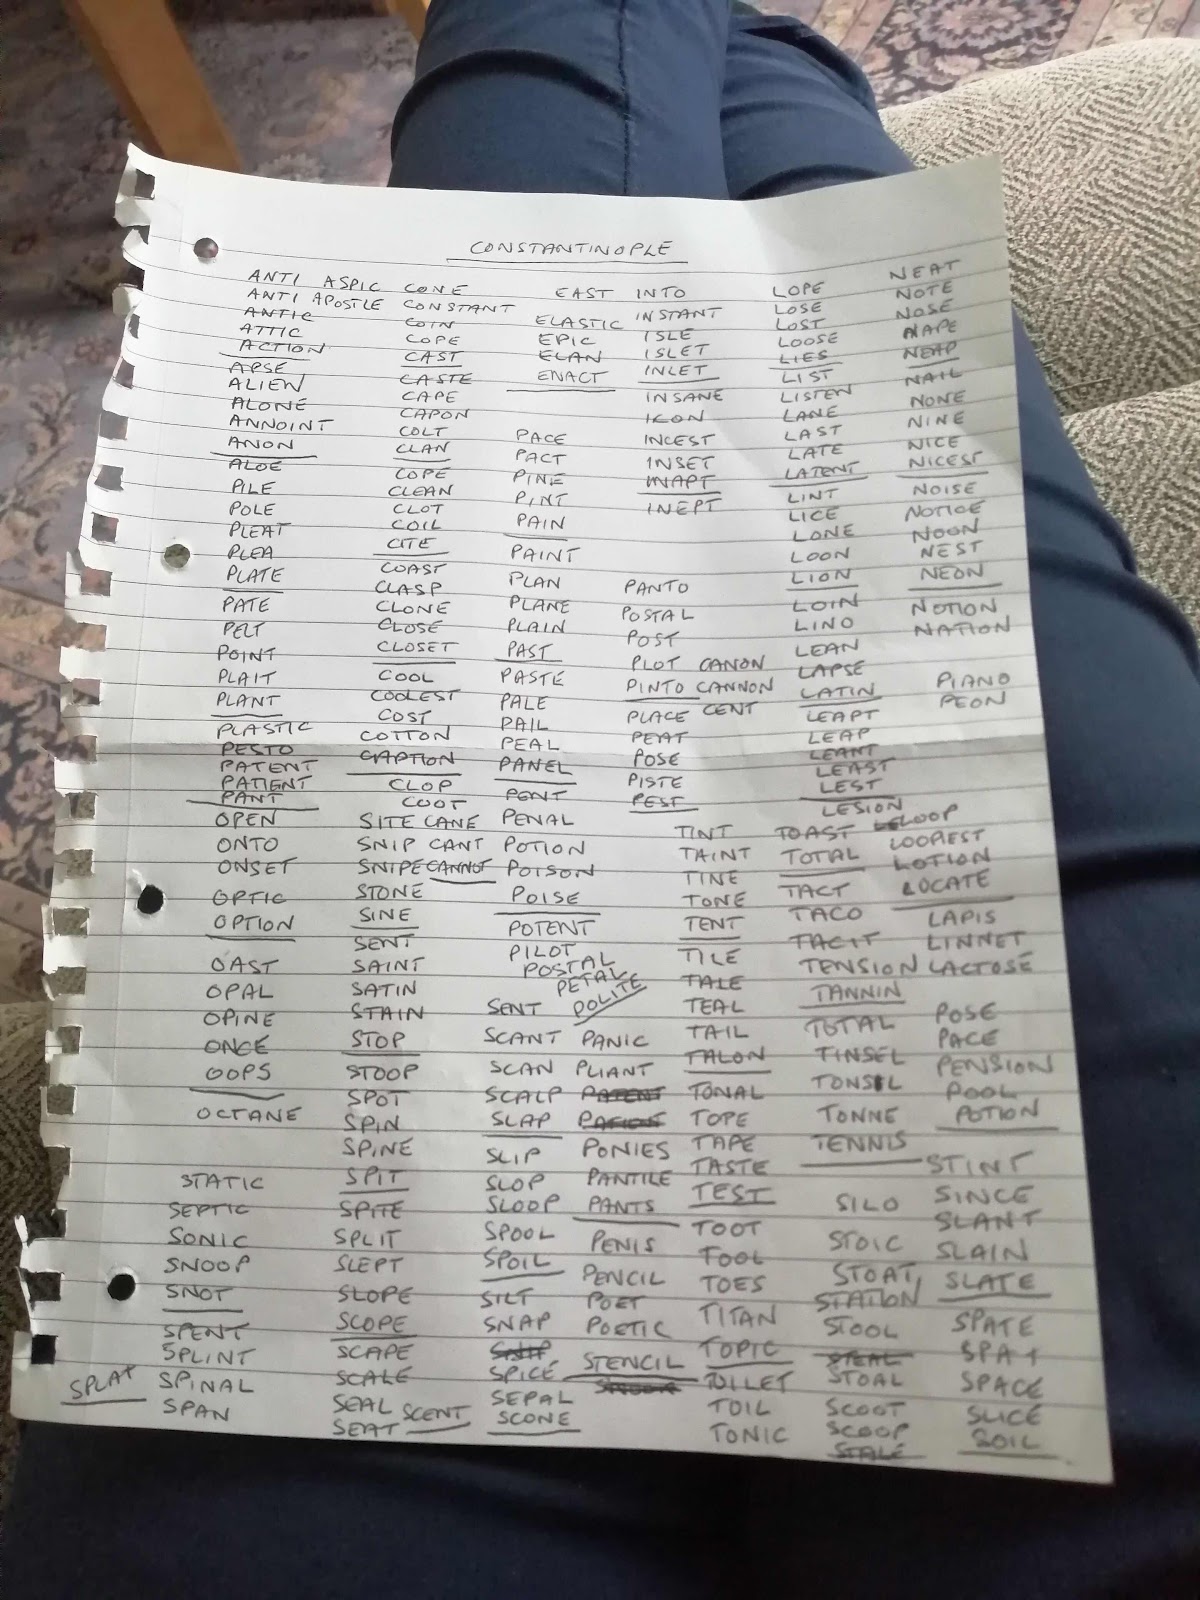 CONSTANTINOPLE
ANTI ASPIC
ANTI APOSTLE
ANTIC
ATTIC
ACTION
APSE
ALIEN
ALONE
ANNOINT
ANON
ALOE
PILE
POLE
PLEAT
PLEA
PLATE
PATE
PELT
POINT
PLAIT
PLANT
PLASTIC
PESTO
PATENT
PATIENT
PANT
OPEN
ONTO
ONSET
OPTIC
OPTION
OAST
OPAL
OPINE
ONCE
OOPS
OCTANE
STATIC
SEPTIC
SONIC
SNOOP
SNOT
SPENT
SPLINT
SPLAT SPINAL
SPAN
CONE
CONSTANT
COIN
COPE
CAST
CASTE
CAPE
CAPON
COLT
CLAN
COPE
CLEAN
CLOT
COIL
CITE
COAST
CLASP
CLONE
CLOSE
CLOSET
COOL
COOLEST
COST
COTTON
CAPTION
CLOP
COOT
SITE CANE
SNIP CANT
SNIPE CANNOT
STONE
SINE
SENT
SAINT
SATIN
STAIN
STOP
STOOP
SPOT
SPIN
SPINE
SPIT
SPITE
SPLIT
SLEPT
SLOPE
SCOPE
SCAPE
SCALE
SEAL SCENT
SEAT
EAST
ELASTIC
EPIC
ELAN
ENACT
PACE
PACT
PINE
PINT
PAIN
PAINT
PLAN
PLANE
PLAIN
PAST
PASTE
PALE
PAIL
PEAL
PANEL
PENT
PENAL
POTION
POISON
POISE
POTENT
PILOT
POSTAL
PETAL
POLITE
SENT
SCANT
SCAN
SCALP
SLAP
SLIP
SLOP
SLOOP
SPOOL
SPOIL
SILT
SNAP
SPICE
SEPAL
SCONE
PANIC
PLIANT
PATENT
PONIES
PANTILE
PANTS
PENIS
PENCIL
POET
POETIC
STENCIL
INTO
INSTANT
ISLE
ISLET
INLET
INSANE
IKON
INCEST
INSET
INAPT
INEPT
PANTO
POSTAL
POST
PLOT CANON
PINTO CANNON
PLACE CENT
PEAT
POSE
PISTE
PEST
TINT
TAINT
TINE
TONE
TENT
TILE
TALE
TEAL
TAIL
TALON
TONAL
TOPE
TAPE
TASTE
TEST
TOOT
TOOL
TOES
TITAN
TOPIC
TOILET
TOIL
TONIC
LOPE
LOSE
LOST
LOOSE
LIES
LIST
LISTEN
LANE
LAST
LATE
LATENT
LINT
LICE
LONE
LOON
LION
LOIN
LINO
LEAN
LAPSE
LATIN
LEAPT
LEAP
LEANT
LEAST
LEST
LESION
TOAST
TOTAL
TACT
TACO
TACIT
TENSION
TANNIN
TOTAL
TINSEL
TONSIL
TONNE
TENNIS
SILO
STOIC
STOAT
STATION
STOOL
STEAL
STOAL
SCOOT
SCOOP
STALE
NEAT
NOTE
NOSE
NAPE
NEAP
NAIL
NONE
NINE
NICE
NICEST
NOISE
NOTICE
NOON
NEST
NEON
NOTION
NATION
PIANO
PEON
LOOP
LOOPIEST
LOTION
LOCATE
LAPIS
LINNET
LACTOSE
POSE
PACE
PENSION
POOL
POTION
STINT
SINCE
SLANT
SLAIN
SLATE
SPATE
SPAT
SPACE
SLICE
SOIL